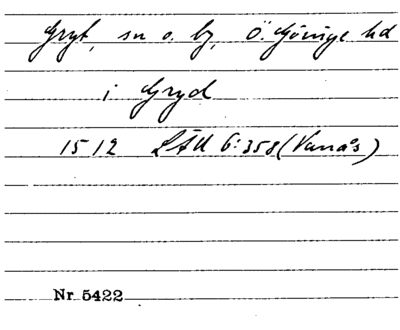 Gryt, sn o. by, Ö. Göinge hd
i Gryd
1512 LÄU 6:358 (Vanås)
Nr 5422